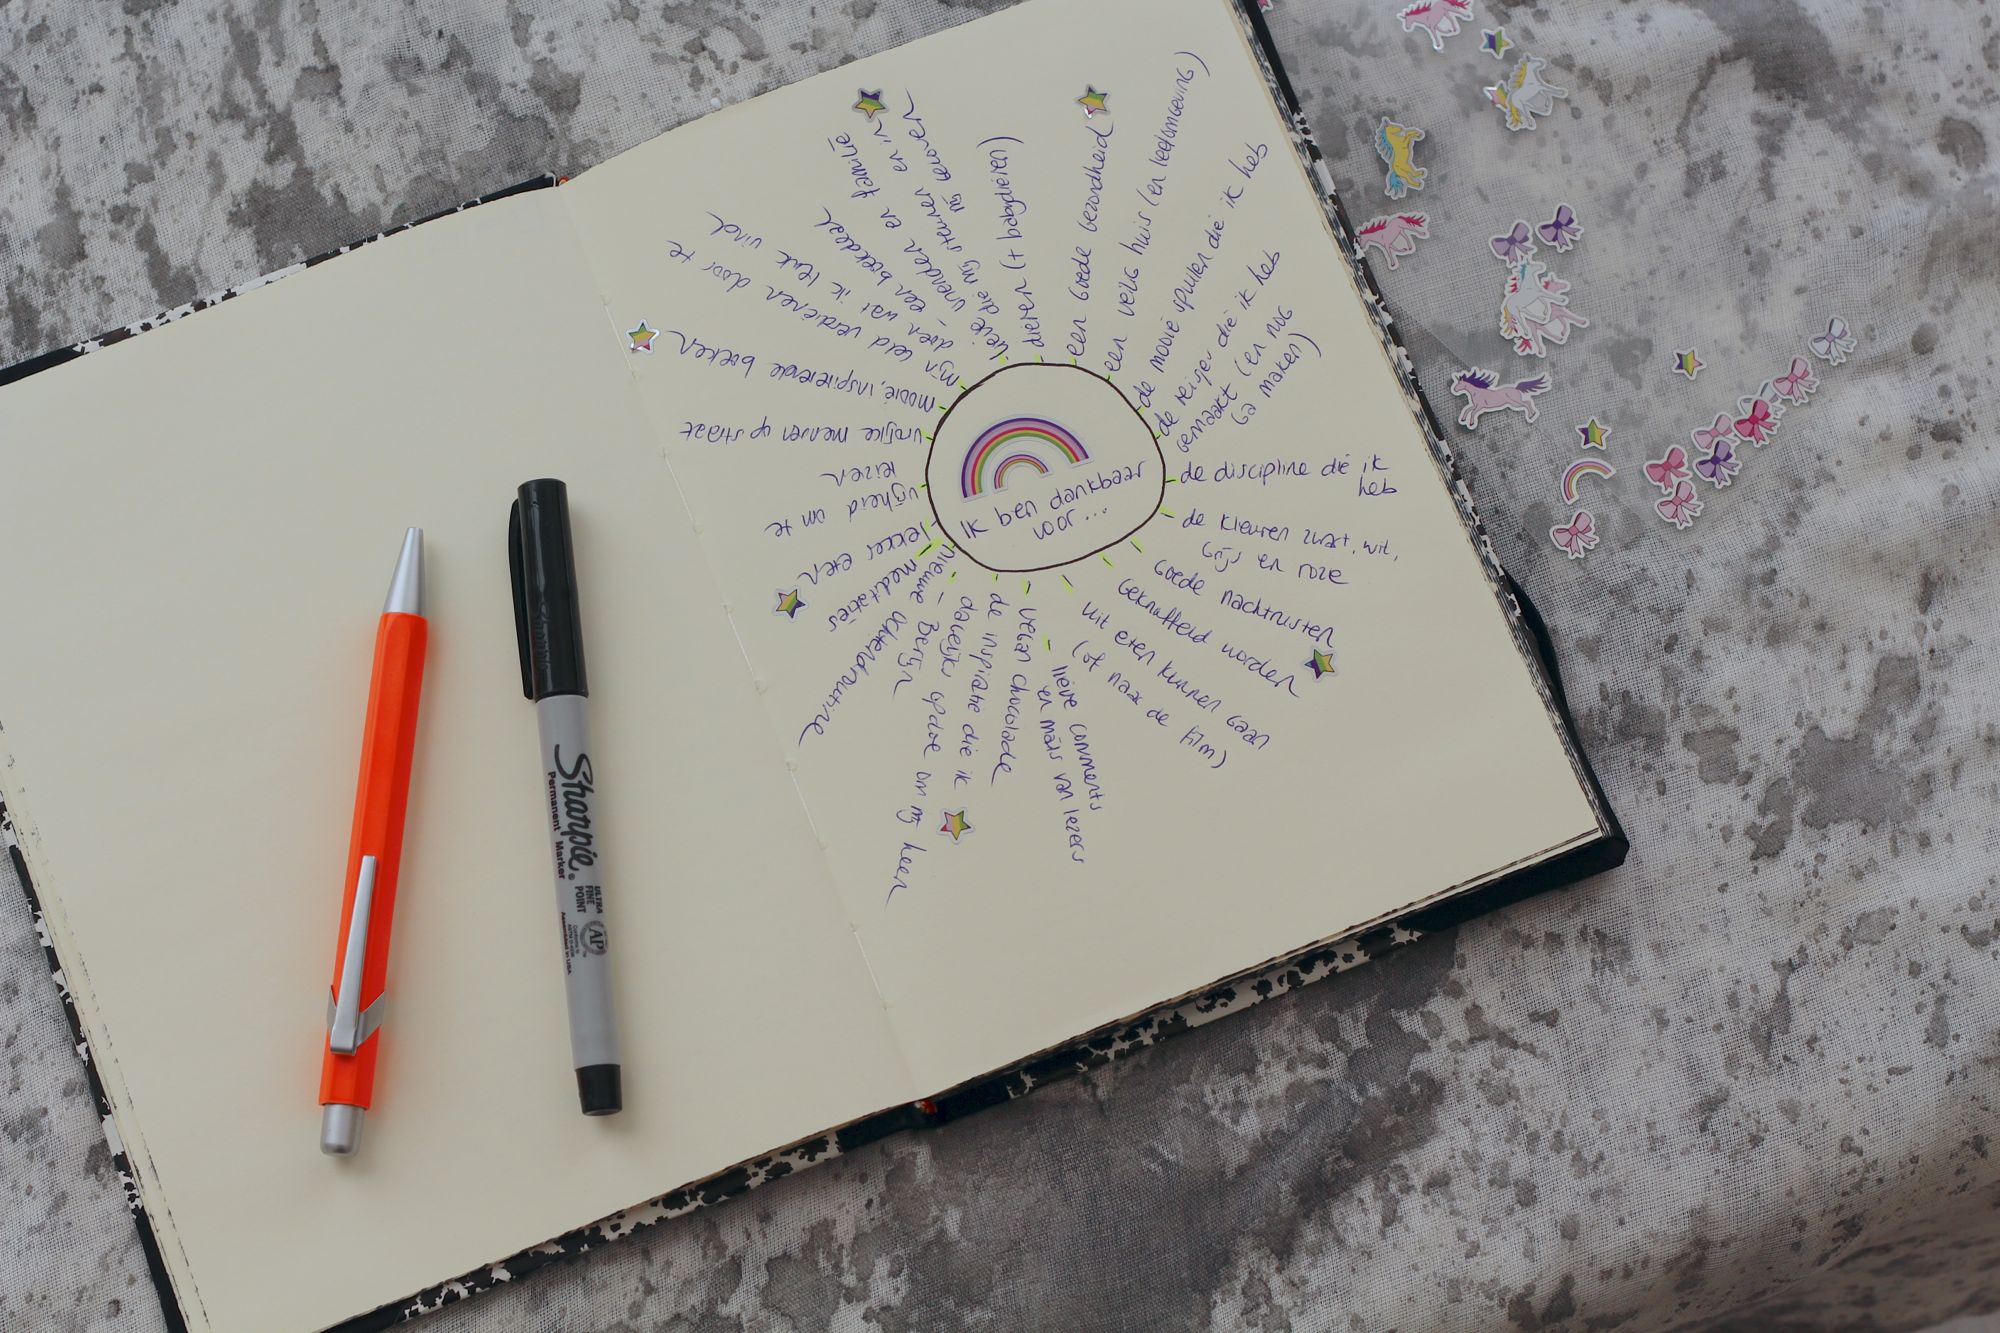 Ik ben dankbaar
voor...
een goede gezondheid
een veilig huis (en leefomgeving)
de mooie spullen die ik heb
de reisjes die ik heb
gemaakt (en nog
ga maken)
de discipline die ik
heb
de kleuren zwart, wit,
grijs en roze
goede nachtrusten
geknuffeld worden
uit eten kunnen gaan
(of naar de film)
lieve comments
en mails van lezers
vegan chocolade
de inspiratie die ik
dagelijks opdoe om mij heen
- Berlijn
nieuwe ochtendroutine
meditaties
lekker eten
vrijheid om te
reizen
vrolijke mensen op straat
mooie, inspirerende boeken
mijn geld verdienen door te
doen wat ik leuk vind
- een boekdeal
vrienden en familie
lieve die mij steunen en in
mij geloven
dieren (+ babydieren)
Sharpie®
Permanent Marker
ULTRA
FINE
POINT
AP